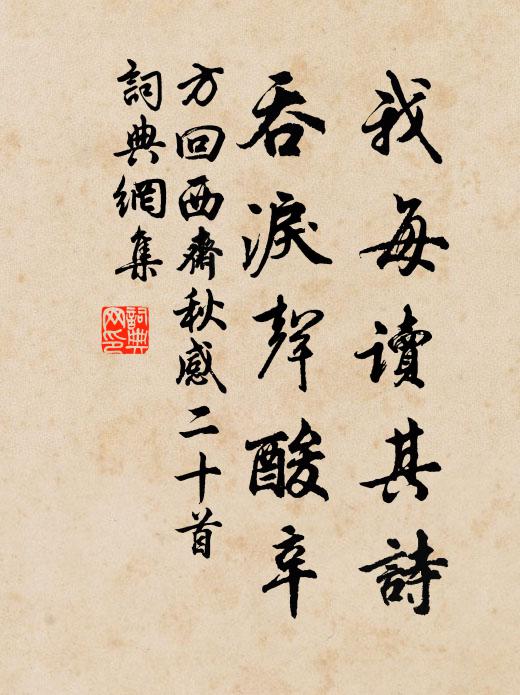 我每讀其詩
吞淚聲酸辛
方回西齋秋感二十首
詞典網集
詞典
网印